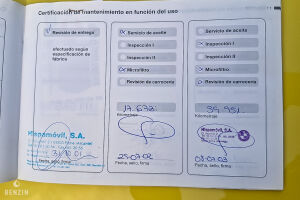 Certificación de mantenimiento en función del uso
Revisión de entrega
efectuado según
especificación de
fábrica
Hispamóvil, S.A.
Fecha, sello, firma
Servicio de aceite
Inspección I
Inspección II
Microfiltro
Revisión de carrocería
17.673
Kilometraje
Fecha, sello, firma
Servicio de aceite
Inspección I
Inspección II
Microfiltro
Revisión de carrocería
39.951
Kilometraje
Hispamóvil, S.A.
Fecha, sello, firma
BENZIN